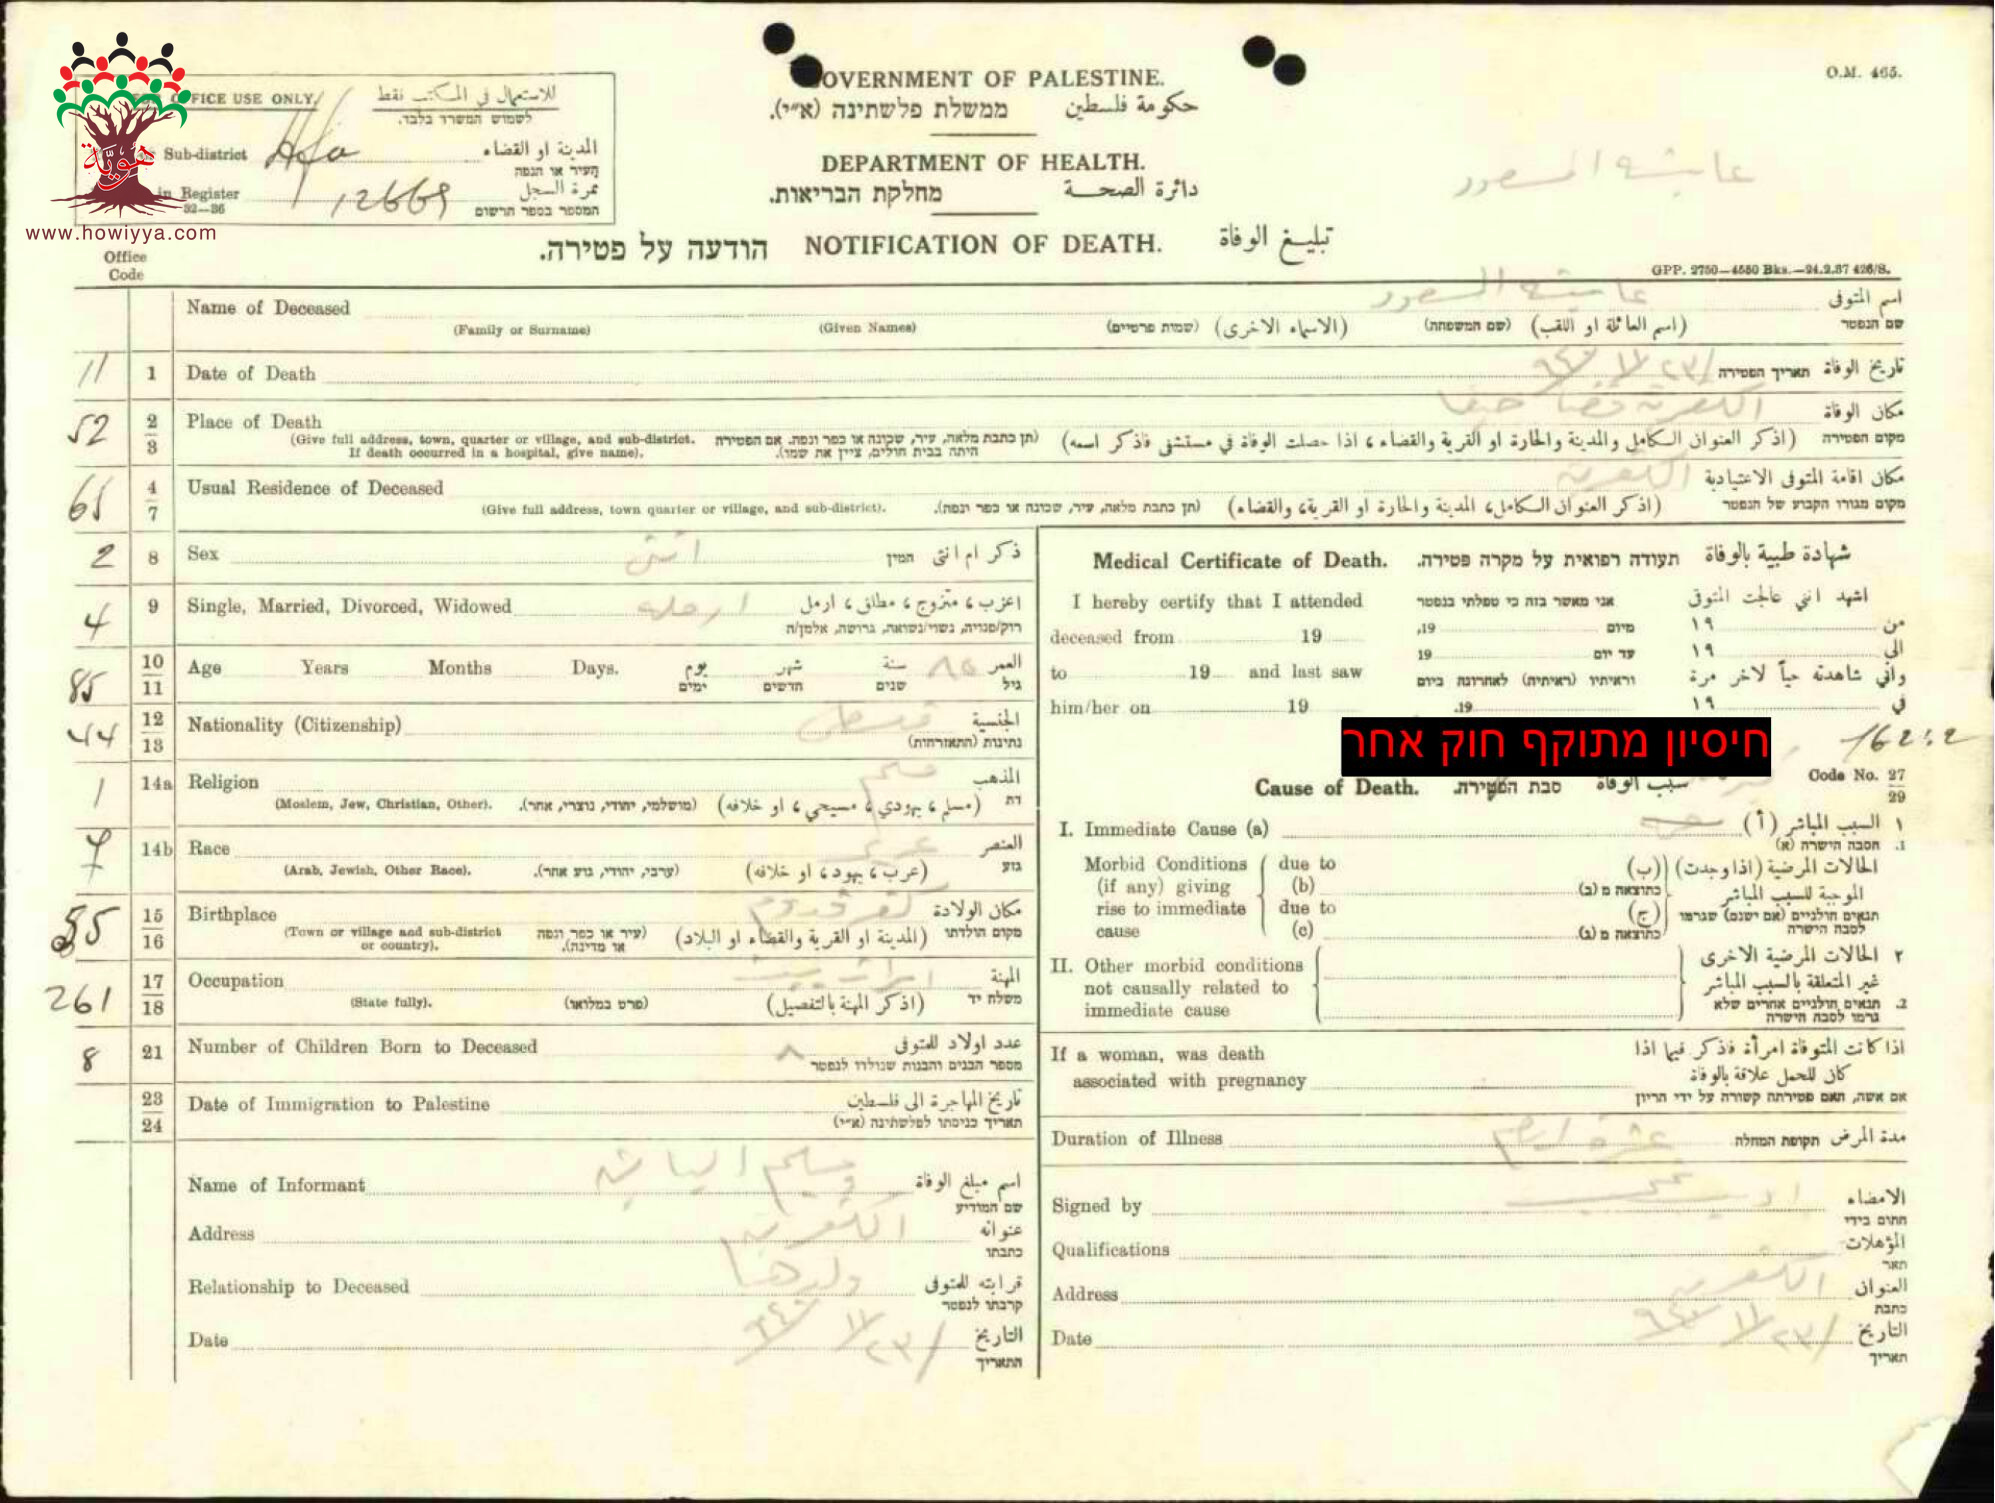 O.M. 465.
FOR OFFICE USE ONLY. للاستعمال في المكتب نقط
לשמוש המשרד בלבד.
Sub-district Hfa المدينة او القضاء
העיר או הנפה
in Register 12669 نمرة السجل
32—36 המספר בספר הרשום
هوية
www.howiyya.com
GOVERNMENT OF PALESTINE.
ממשלת פלשתינה (א״י). حكومة فلسطين
DEPARTMENT OF HEALTH.
מחלקת הבריאות. دائرة الصحة
הודעה על פטירה. NOTIFICATION OF DEATH. تبليغ الوفاة
Office
Code
GPP. 2750—4550 Bks.—24.2.37 426/S.
Name of Deceased اسم المتوفى
(Family or Surname) (Given Names) (שמות פרטיים) (الاسماء الاخرى) (שם המשפחה) (اسم العائلة او اللقب) שם הנפטר
11 1 Date of Death ٢٣/١١/٩٤٦ תאריך הפטירה تاريخ الوفاة
52 2 3 Place of Death مكان الوفاة
(Give full address, town, quarter or village, and sub-district. (תן כתבת מלאה, עיר, שכונה או כפר ונפה. אם הפטירה (اذكر العنوان الكامل والمدينة والحارة او القرية والقضاء ، اذا حصلت الوفاة في مستشفى فاذكر اسمه) מקום הפטירה
If death occurred in a hospital, give name). היתה בבית חולים, ציין את שמו).
65 4 7 Usual Residence of Deceased مكان اقامة المتوفى الاعتيادية
(Give full address, town quarter or village, and sub-district). (תן כתבת מלאה, עיר, שכונה או כפר ונפה). (اذكر العنوان الكامل، المدينة والحارة او القرية، والقضاء) מקום מגורו הקבוע של הנפטר
2 8 Sex انثى המין ذكر ام انثى
4 9 Single, Married, Divorced, Widowed ارمله اعزب ، متزوج ، مطلق ، ارمل
רוק/פנויה, נשוי/נשואה, גרושה, אלמן/ה
85 10 11 Age Years Months Days. يوم شهر سنة ٨٥ العمر
ימים חדשים שנים גיל
44 12 13 Nationality (Citizenship) الجنسية
נתינות (התאזרחות)
1 14a Religion مسلم المذهب
(Moslem, Jew, Christian, Other). (מושלמי, יהודי, נוצרי, אחר). (مسلم ، يهودي ، مسيحي ، او خلافه) דת
7 14b Race عربي العنصر
(Arab, Jewish, Other Race). (ערבי, יהודי, גזע אחר). (عرب ، يهود ، او خلافه) גזע
85 15 16 Birthplace مكان الولادة
(Town or village and sub-district (עיר או כפר ונפה (المدينة او القرية والقضاء او البلاد) מקום הולדתו
or country). או מדינה).
261 17 18 Occupation المهنة
(State fully). (פרט במלואו) (اذكر المهنة بالتفصيل) משלח יד
8 21 Number of Children Born to Deceased ٨ عدد اولاد للمتوفى
מספר הבנים והבנות שנולדו לנפטר
23 24 Date of Immigration to Palestine تاريخ المهاجرة الى فلسطين
תאריך כניסתו לפלשתינה (א״י)
Name of Informant اسم مبلغ الوفاة
שם המודיע
Address عنوانه
כתבתו
Relationship to Deceased ولدها قرابته للمتوفى
קרבתו לנפטר
Date ٢٣/١١/٩٤٦ التاريخ
התאריך
Medical Certificate of Death. תעודה רפואית על מקרה פטירה. شهادة طبية بالوفاة
I hereby certify that I attended אני מאשר בזה כי טפלתי בנפטר اشهد انني عالجت المتوفى
deceased from 19 מיום 19, من ١٩
to 19 and last saw עד יום 19 الى ١٩
וראיתיו (ראיתיה) לאחרונה ביום واني شاهدته حياً لاخر مرة
him/her on 19 19. في ١٩
חיסיון מתוקף חוק אחר
162:2
Code No. 27 29
Cause of Death. סבת הפטירה. سبب الوفاة
I. Immediate Cause (a) ١ السبب المباشر (أ)
1. הסבה הישרה (א)
Morbid Conditions (if any) giving rise to immediate cause
due to (b)
due to (c)
الحالات المرضية (اذا وجدت) (ب)
כתוצאה מ (ב) الموجبة للسبب المباشر
(ج) תנאים חולניים (אם ישנם) שגרמו
כתוצאה מ (ג) לסבה הישרה
II. Other morbid conditions not causally related to immediate cause
٢ الحالات المرضية الاخرى
غير المتعلقة بالسبب المباشر
2. תנאים חולניים אחרים שלא
גרמו לסבה הישרה
If a woman, was death اذا كانت المتوفاة امرأة فاذكر فيما اذا
associated with pregnancy كان للحمل علاقة بالوفاة
אם אשה, האם פטירתה קשורה על ידי הריון
Duration of Illness תקופת המחלה مدة المرض
Signed by الامضاء
חתום בידי
Qualifications المؤهلات
תאר
Address العنوان
כתבת
Date ٢٣/١١/٩٤٦ التاريخ
תאריך